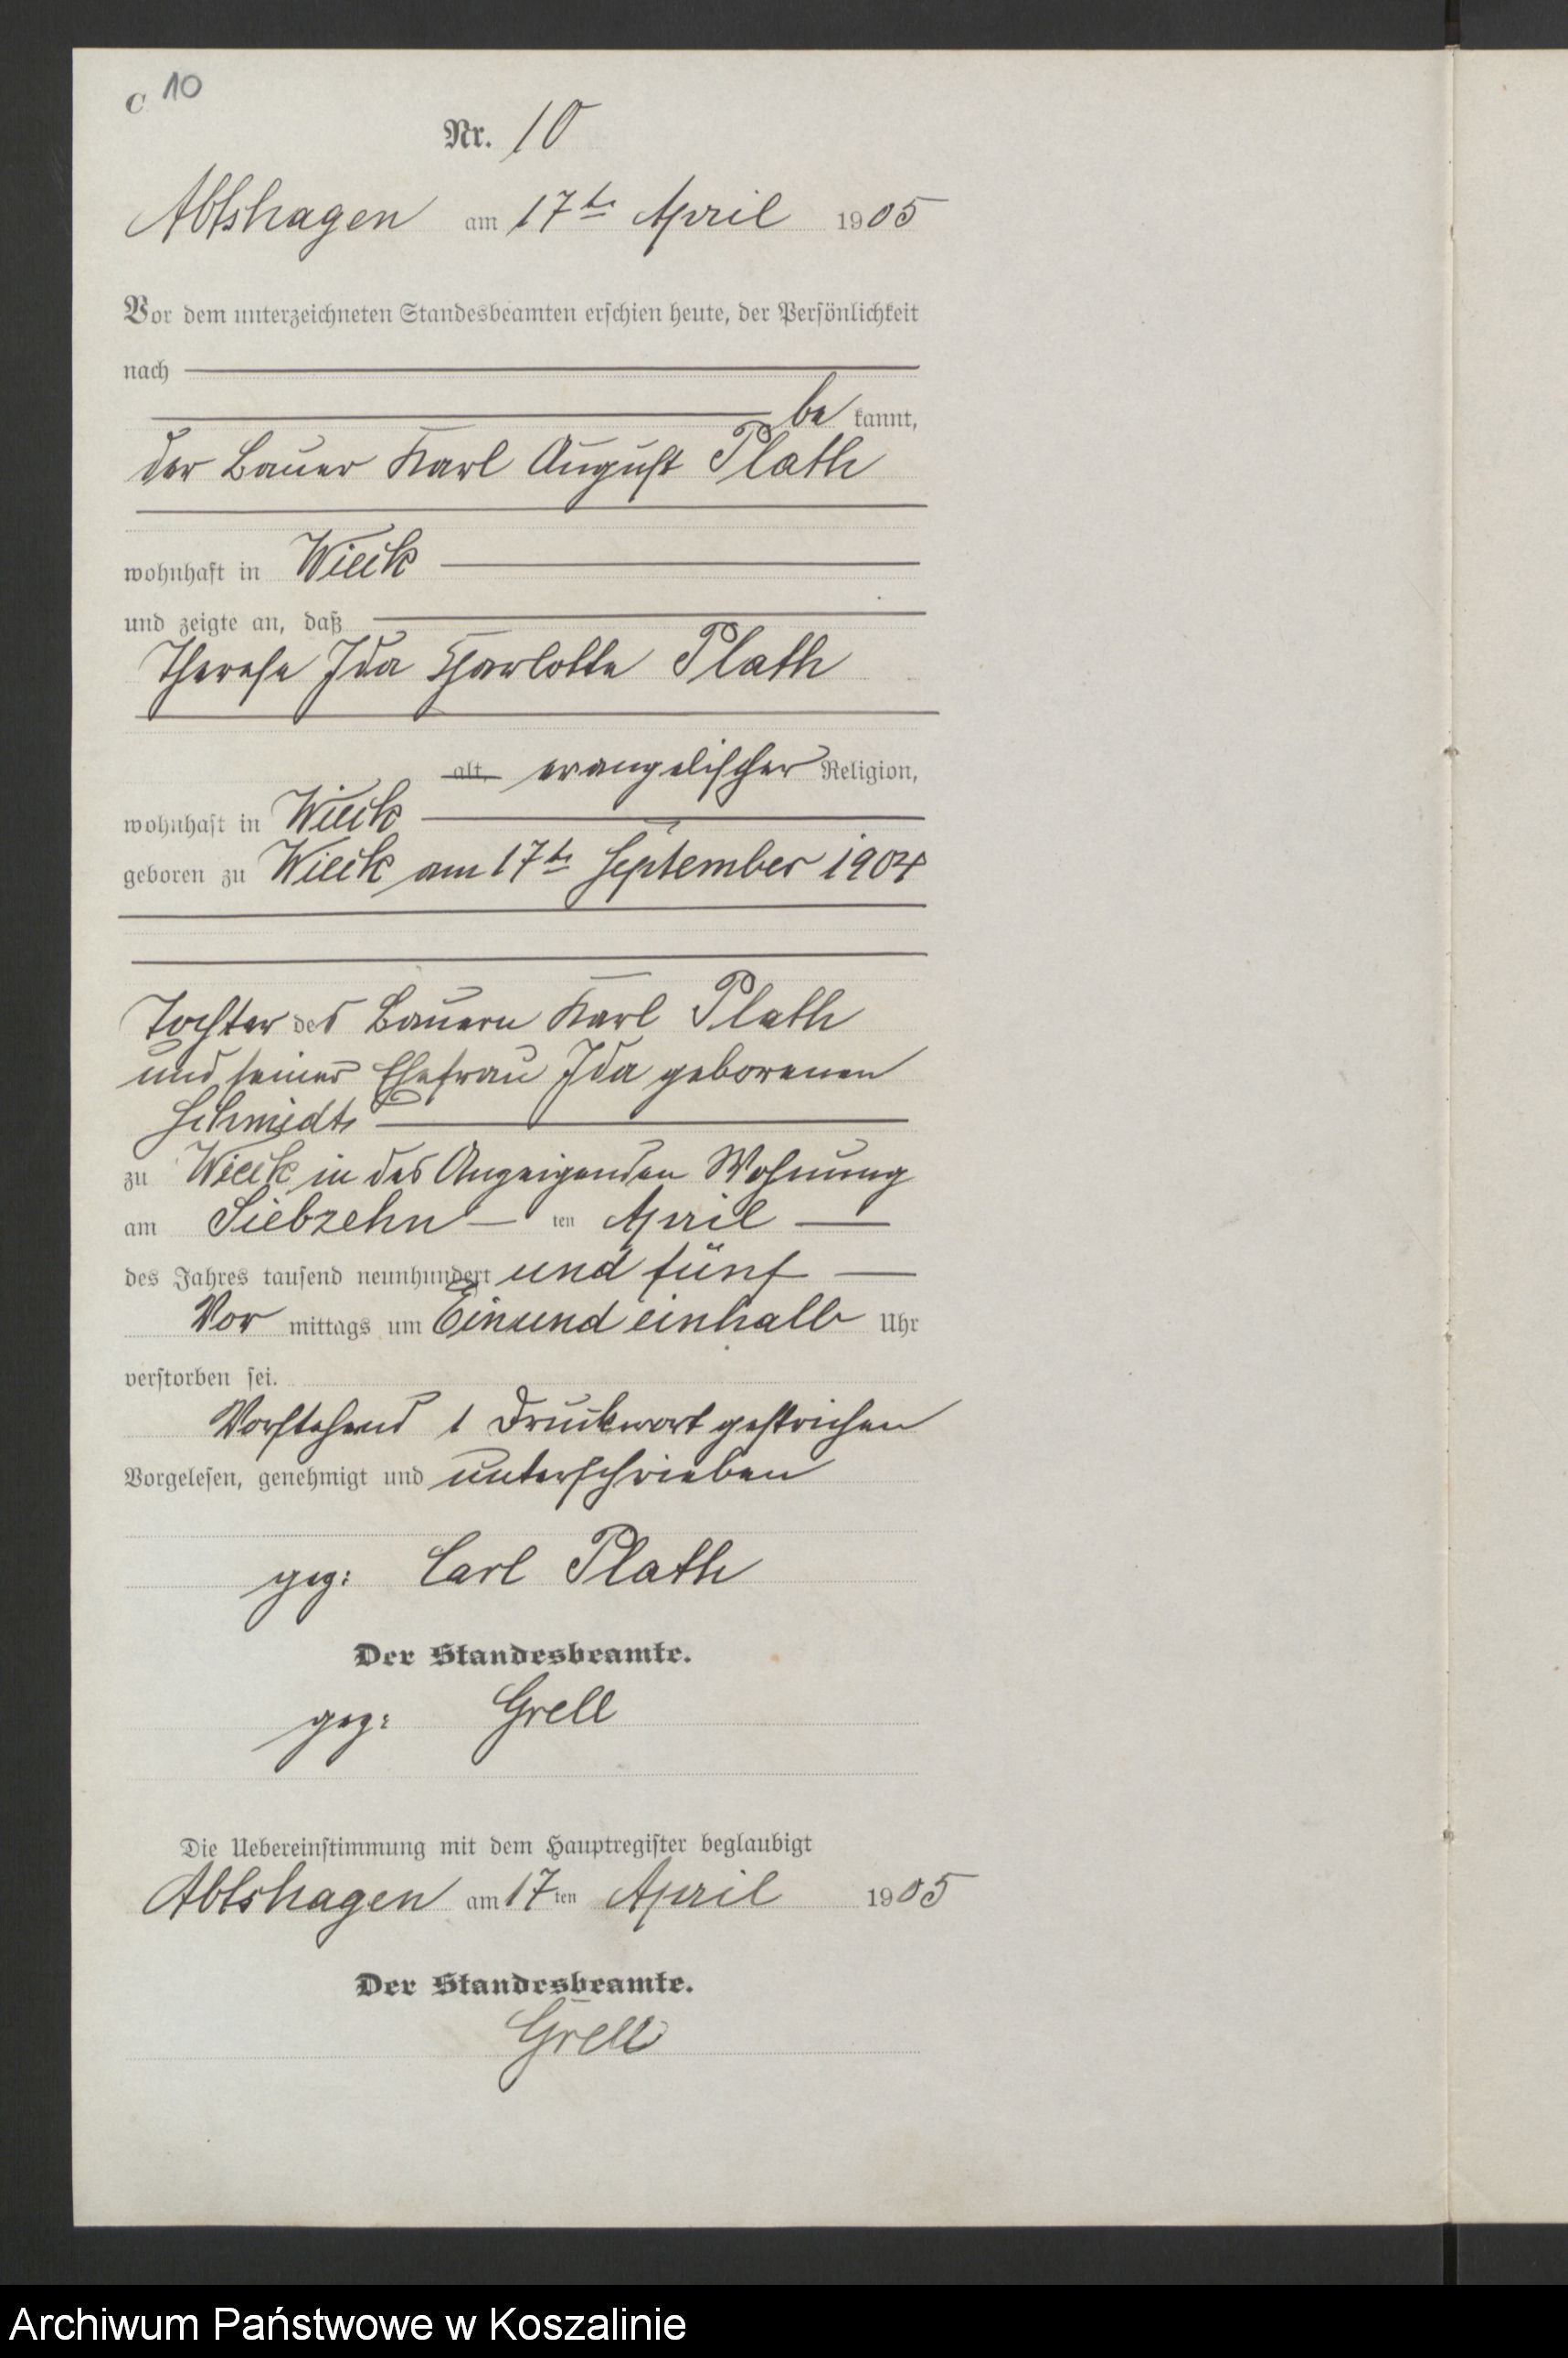 C 10
Nr. 10
Abtshagen am 17ten April 1905
Vor dem unterzeichneten Standesbeamten erschien heute, der Persönlichkeit
nach
be kannt,
der Bauer Karl August Plath
wohnhaft in Wieck
und zeigte an, daß
Therese Ida Charlotte Plath
alt, evangelischer Religion,
wohnhaft in Wieck
geboren zu Wieck am 17ten September 1904
Tochter des Bauern Karl Plath
und seiner Ehefrau Ida geborenen
Schmidt
zu Wieck in des Anzeigenden Wohnung
am Siebzehn ten April
des Jahres tausend neunhundert und fünf
Vor mittags um Einundeinhalb Uhr
verstorben sei.
Vorstehend 1 Druckwort gestrichen
Vorgelesen, genehmigt und unterschrieben
gez: Carl Plath
Der Standesbeamte.
gez: Grell
Die Uebereinstimmung mit dem Hauptregister beglaubigt
Abtshagen am 17ten April 1905
Der Standesbeamte.
Grell
Archiwum Państwowe w Koszalinie